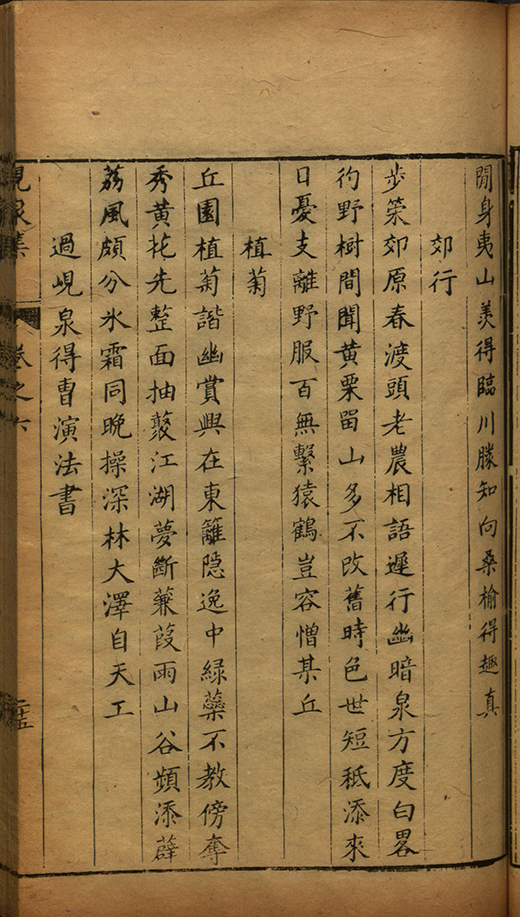 閒身夷山羨得臨川勝知向桑榆得趣真
郊行
步策郊原春渡頭老農相語遲行幽暗泉方度白畧
彴野樹間聞黃栗畱山多不改舊時色世短秪添來
日憂支離野服百無繫猿鶴豈容憎某丘
植菊
丘園植菊諧幽賞興在東籬隠逸中緑蘂不教傍奪
秀黃花先整面抽藂江湖夢斷蒹葭雨山谷頻添薜
荔風頗分氷霜同晚操深林大澤自天工
過峴泉得曹演法書
峴泉集
卷之六